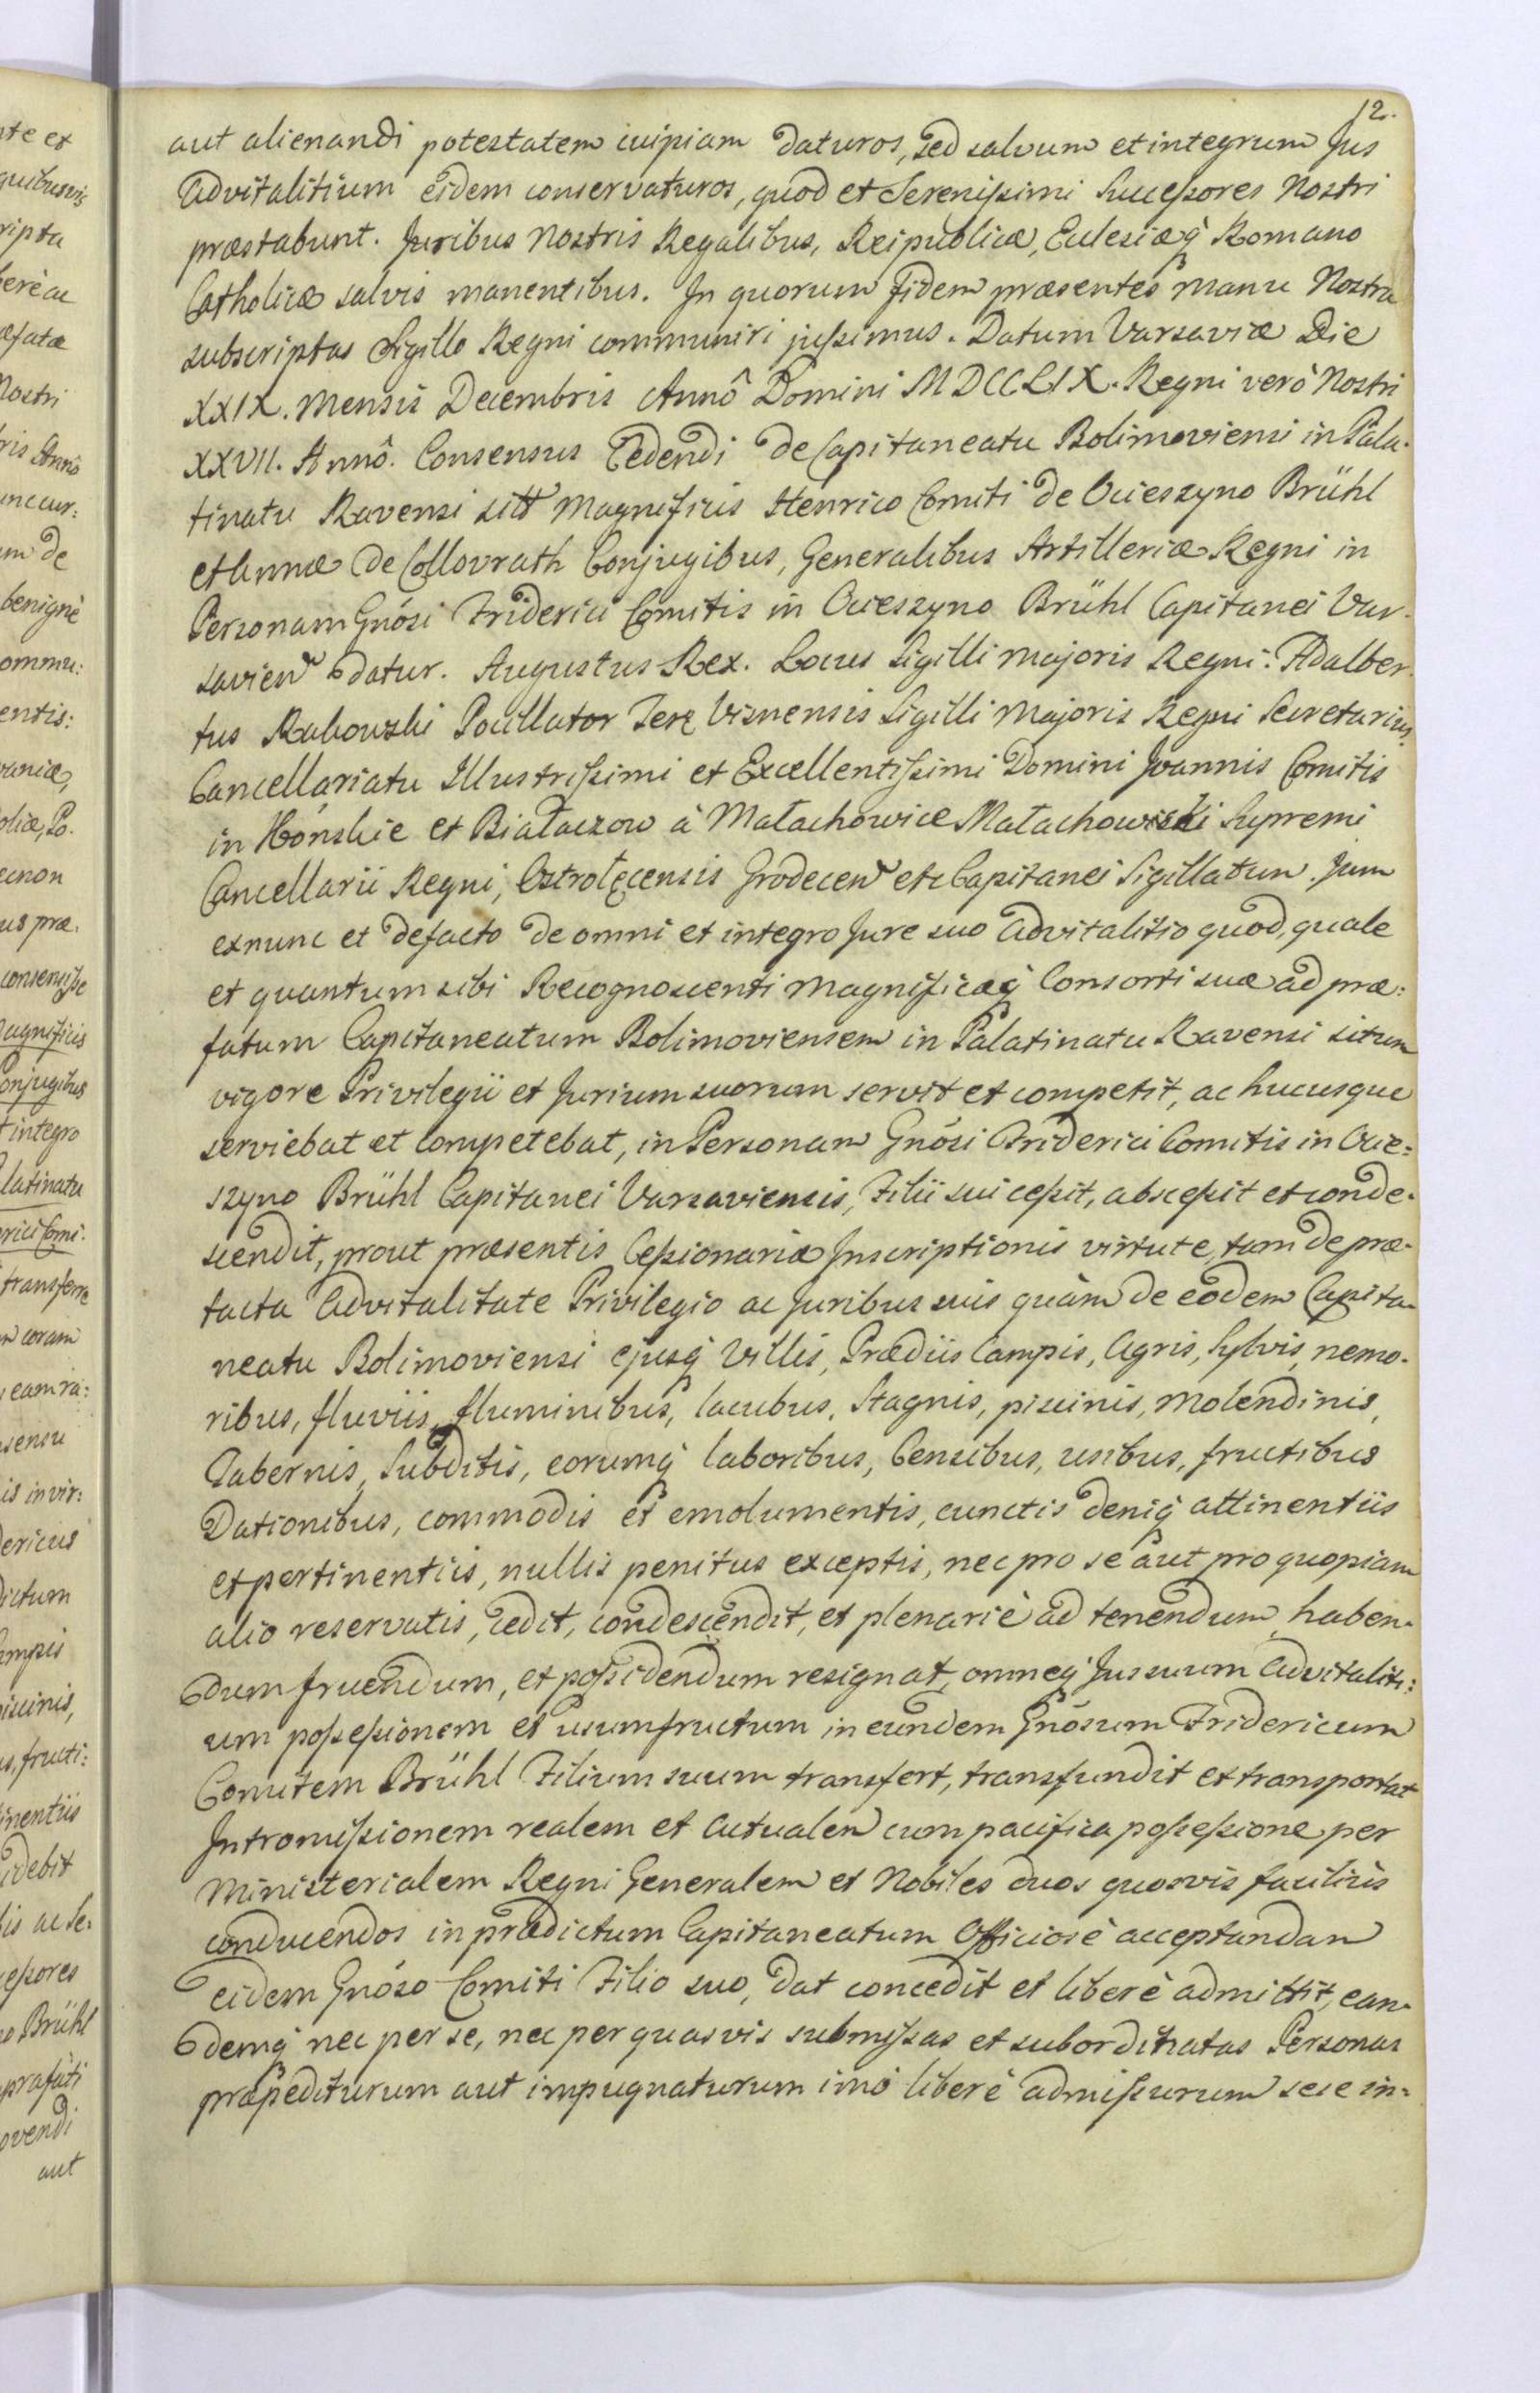 12.
aut alienandi potestatem cuipiam daturos, sed salvum et integrum Jus
Advitalitium eidem conservaturos, quod et Serenissimi Successores Nostri
præstabunt. Juribus Nostris Regalibus, Reipublicæ, Eclesiæq́ Romano
Catholicæ salvis manentibus. In quorum fidem præsentes manu Nostra
subscriptas Sigillo Regni communiri jussimus. Datum Varsaviæ Die
XXIX. Mensis Decembris Annô Domini MDCCLIX. Regni verò Nostri
XXVII. Annô. Consensus Cedendi de Capitaneatu Bolimoviensi in Pala-
tinatu Ravensi sitt Magnificis Henrico Comiti de Ocieszyno Brühl
et Annæ de Collovrath Conjugibus, Generalibus Artilleriæ Regni in
Personam Gnósi Friderici Comitis in Ocieszyno Brühl Capitanei Var-
savien datur. Augustus Rex. Locus Sigilli Majoris Regni. Adalber-
tus Rakowski Pocillator Terę Visnensis Sigilli Majoris Regni Secretarius.
Cancellariatu Illustrissimi et Excellentissimi Domini Joannis Comitis
in Hońskie et Białaczow à Małachowice Małachowiski Supremi
Cancellarii Regni, Ostrołęcensis Grodecen etc Capitanei Sigillatum. Jam
exnunc et defacto de omni et integro Jure suo Advitalitio quod, quale
et quantum sibi Recognoscenti Magnificæq́ Consorti suæ ad præ:
fatum Capitaneatum Bolimoviensem in Palatinatu Ravensi situm
vigore Privilegii et Jurium suorum servit et competit, ac hucusque
serviebat et competebat, in Personam Gnósi Friderici Comitis in Ocie:
szyno Brühl Capitanei Varsaviensis, Filii sui cessit, abscessit et conde-
scendit, prout præsentis Cessionariæ Inscriptionis virtute, tam de præ-
tacta Advitalitate Privilegio ac Juribus suis quàm de eodem Capita-
neatu Bolimoviensi ejusq́ Villis, Prædiis Campis, Agris, Sylvis, nemo-
ribus, fluviis, fluminibus, lacubus, Stagnis, piscinis, Molendinis,
Tabernis, Subditis, eorumq́ laboribus, Censibus, usibus, fructibus
Dationibus, commodis et emolumentis, cunctis deniq́ attinentiis
et pertinentiis, nullis penitus exceptis, nec pro se aut pro quopiam
alio reservatis, cedit, condescendit, et plenariè ad tenendum, haben-
dum fruendum, et possidendum resignat, omneq́ Jus suum Advitaliti:
um possessionem et usumfructum in eundem Gnósum Fridericum
Comitem Brühl Filium suum transfert, transfundit et transportat
Intromissionem realem et Actualem cum pacifica possessione per
Ministerialem Regni Generalem et Nobiles duos quosvis faciliùs
conducendos in prædictum Capitaneatum Officiosè acceptandam
eidem Gnóso Comiti Filio suo, dat concedit et liberè admittit, ean-
demq́ nec per se, nec per quasvis submissas et subordinatas Personas
præpediturum aut impugnaturum imò liberè admissurum sese in: